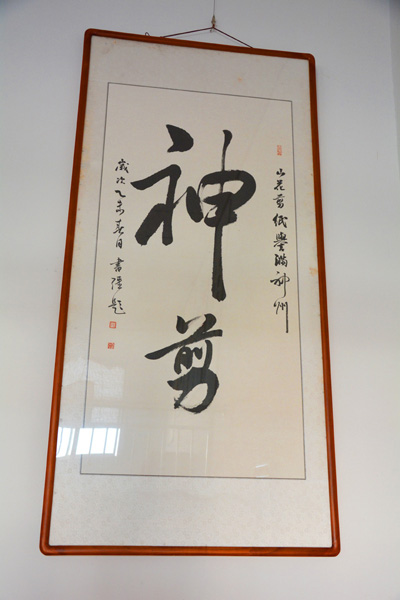 山花剪纸誉满神州
神剪
岁次乙未春月 书 题